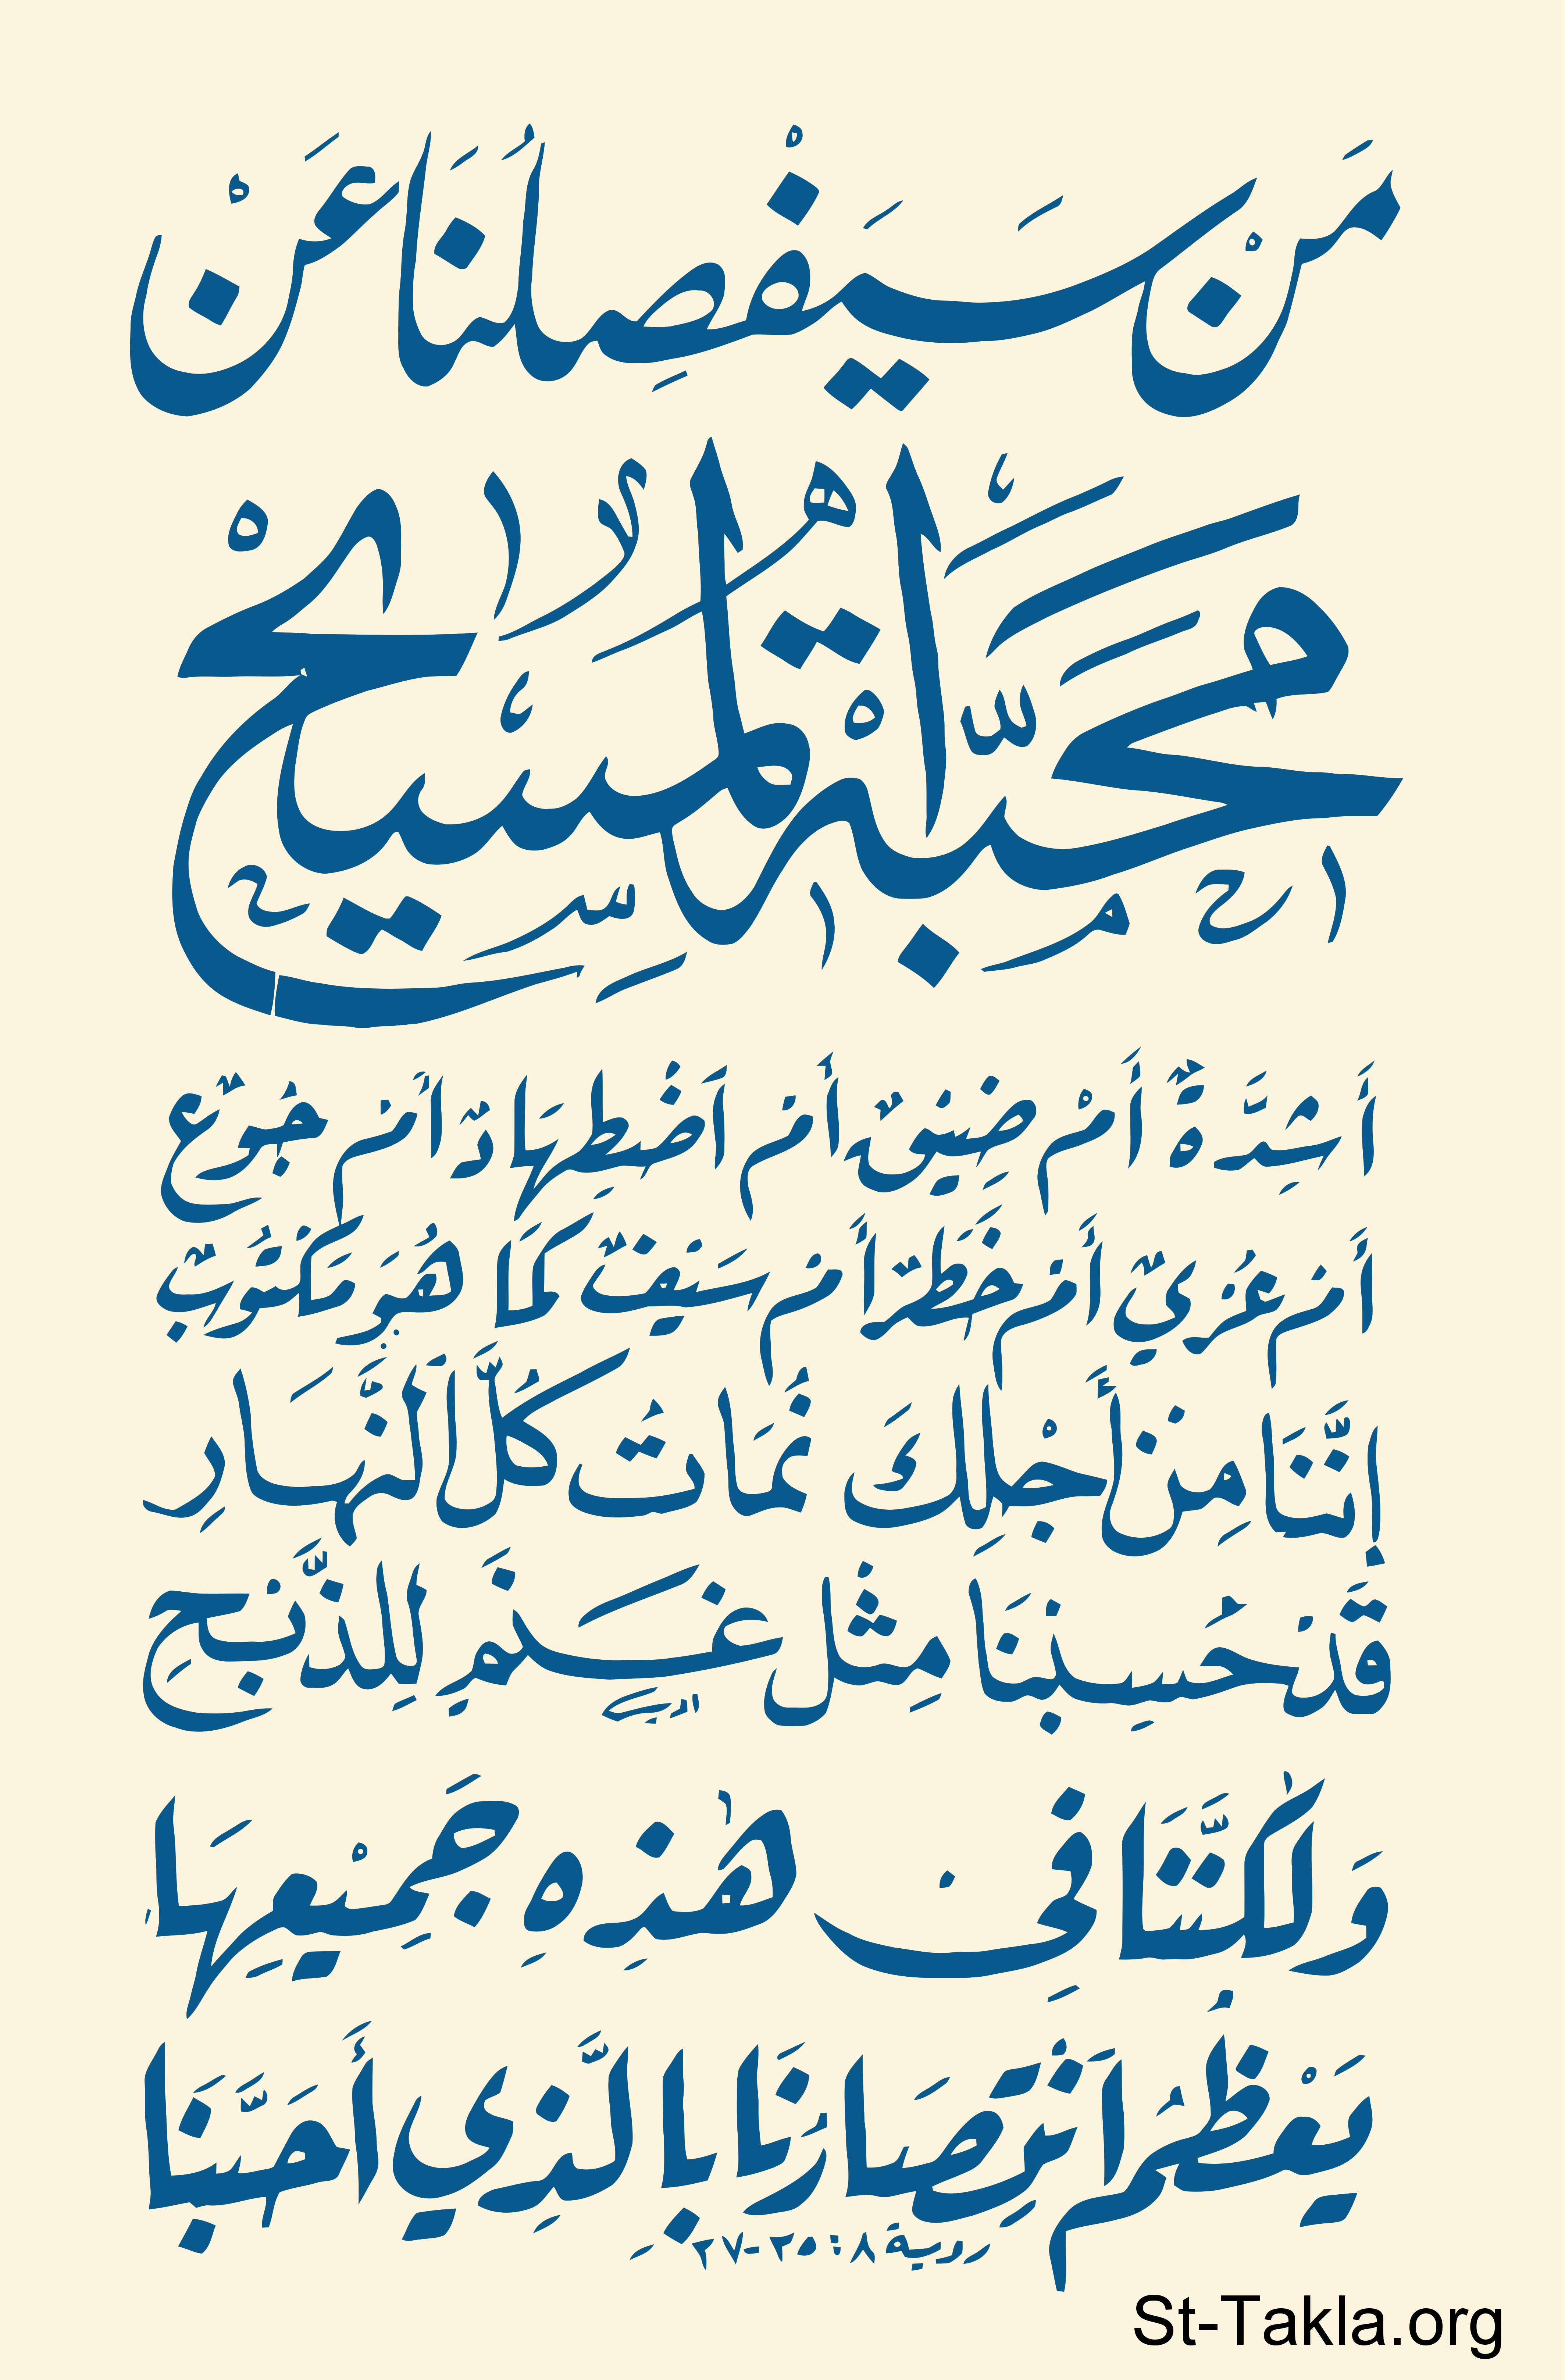 مَنْ سَيَفْصِلُنَا عَنْ
مَحَبَّةِ الْمَسِيحْ
أَشِدَّةٌ أَمْ ضِيْقٌ أَمْ اضْطِهَادٌ أَمْ جُوعٌ
أَمْ عُرْيٌ أَمْ خَطَرٌ أَمْ سَيْفٌ كَمَا هُوَ مَكْتُوبٌ
إِنَّنَا مِنْ أَجْلِكَ نُمَاتُ كُلَّ النَّهَارِ
قَدْ حُسِبْنَا مِثْلَ غَنَمٍ لِلذَّبْحِ
وَلٰكِنَّنَا فِي هٰذِهِ جَمِيْعِهَا
يَعْظُمُ انْتِصَارُنَا بِالَّذِي أَحَبَّنَا
رومية ٨: ٣٥-٣٧
St-Takla.org